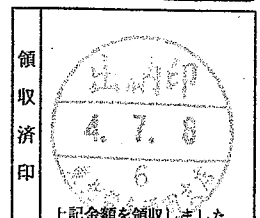 領収済印
出納印
4. 7. 8
6
上記金額を領収しました